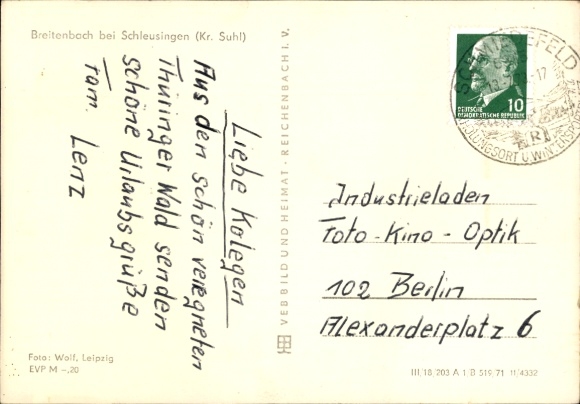 Breitenbach bei Schleusingen (Kr. Suhl)
Liebe Kolegen
Aus den schön verregneten
Thüringer Wald senden
schöne Urlaubsgrüße
Fam. Lenz
Foto: Wolf, Leipzig
EVP M –,20
VEB BILD UND HEIMAT · REICHENBACH I. V.
10
DEUTSCHE
DEMOKRATISCHE REPUBLIK
-17
Industrieladen
Foto-Kino-Optik
102 Berlin
Alexanderplatz 6
III/18/203 A 1 B 519/71 11/4332